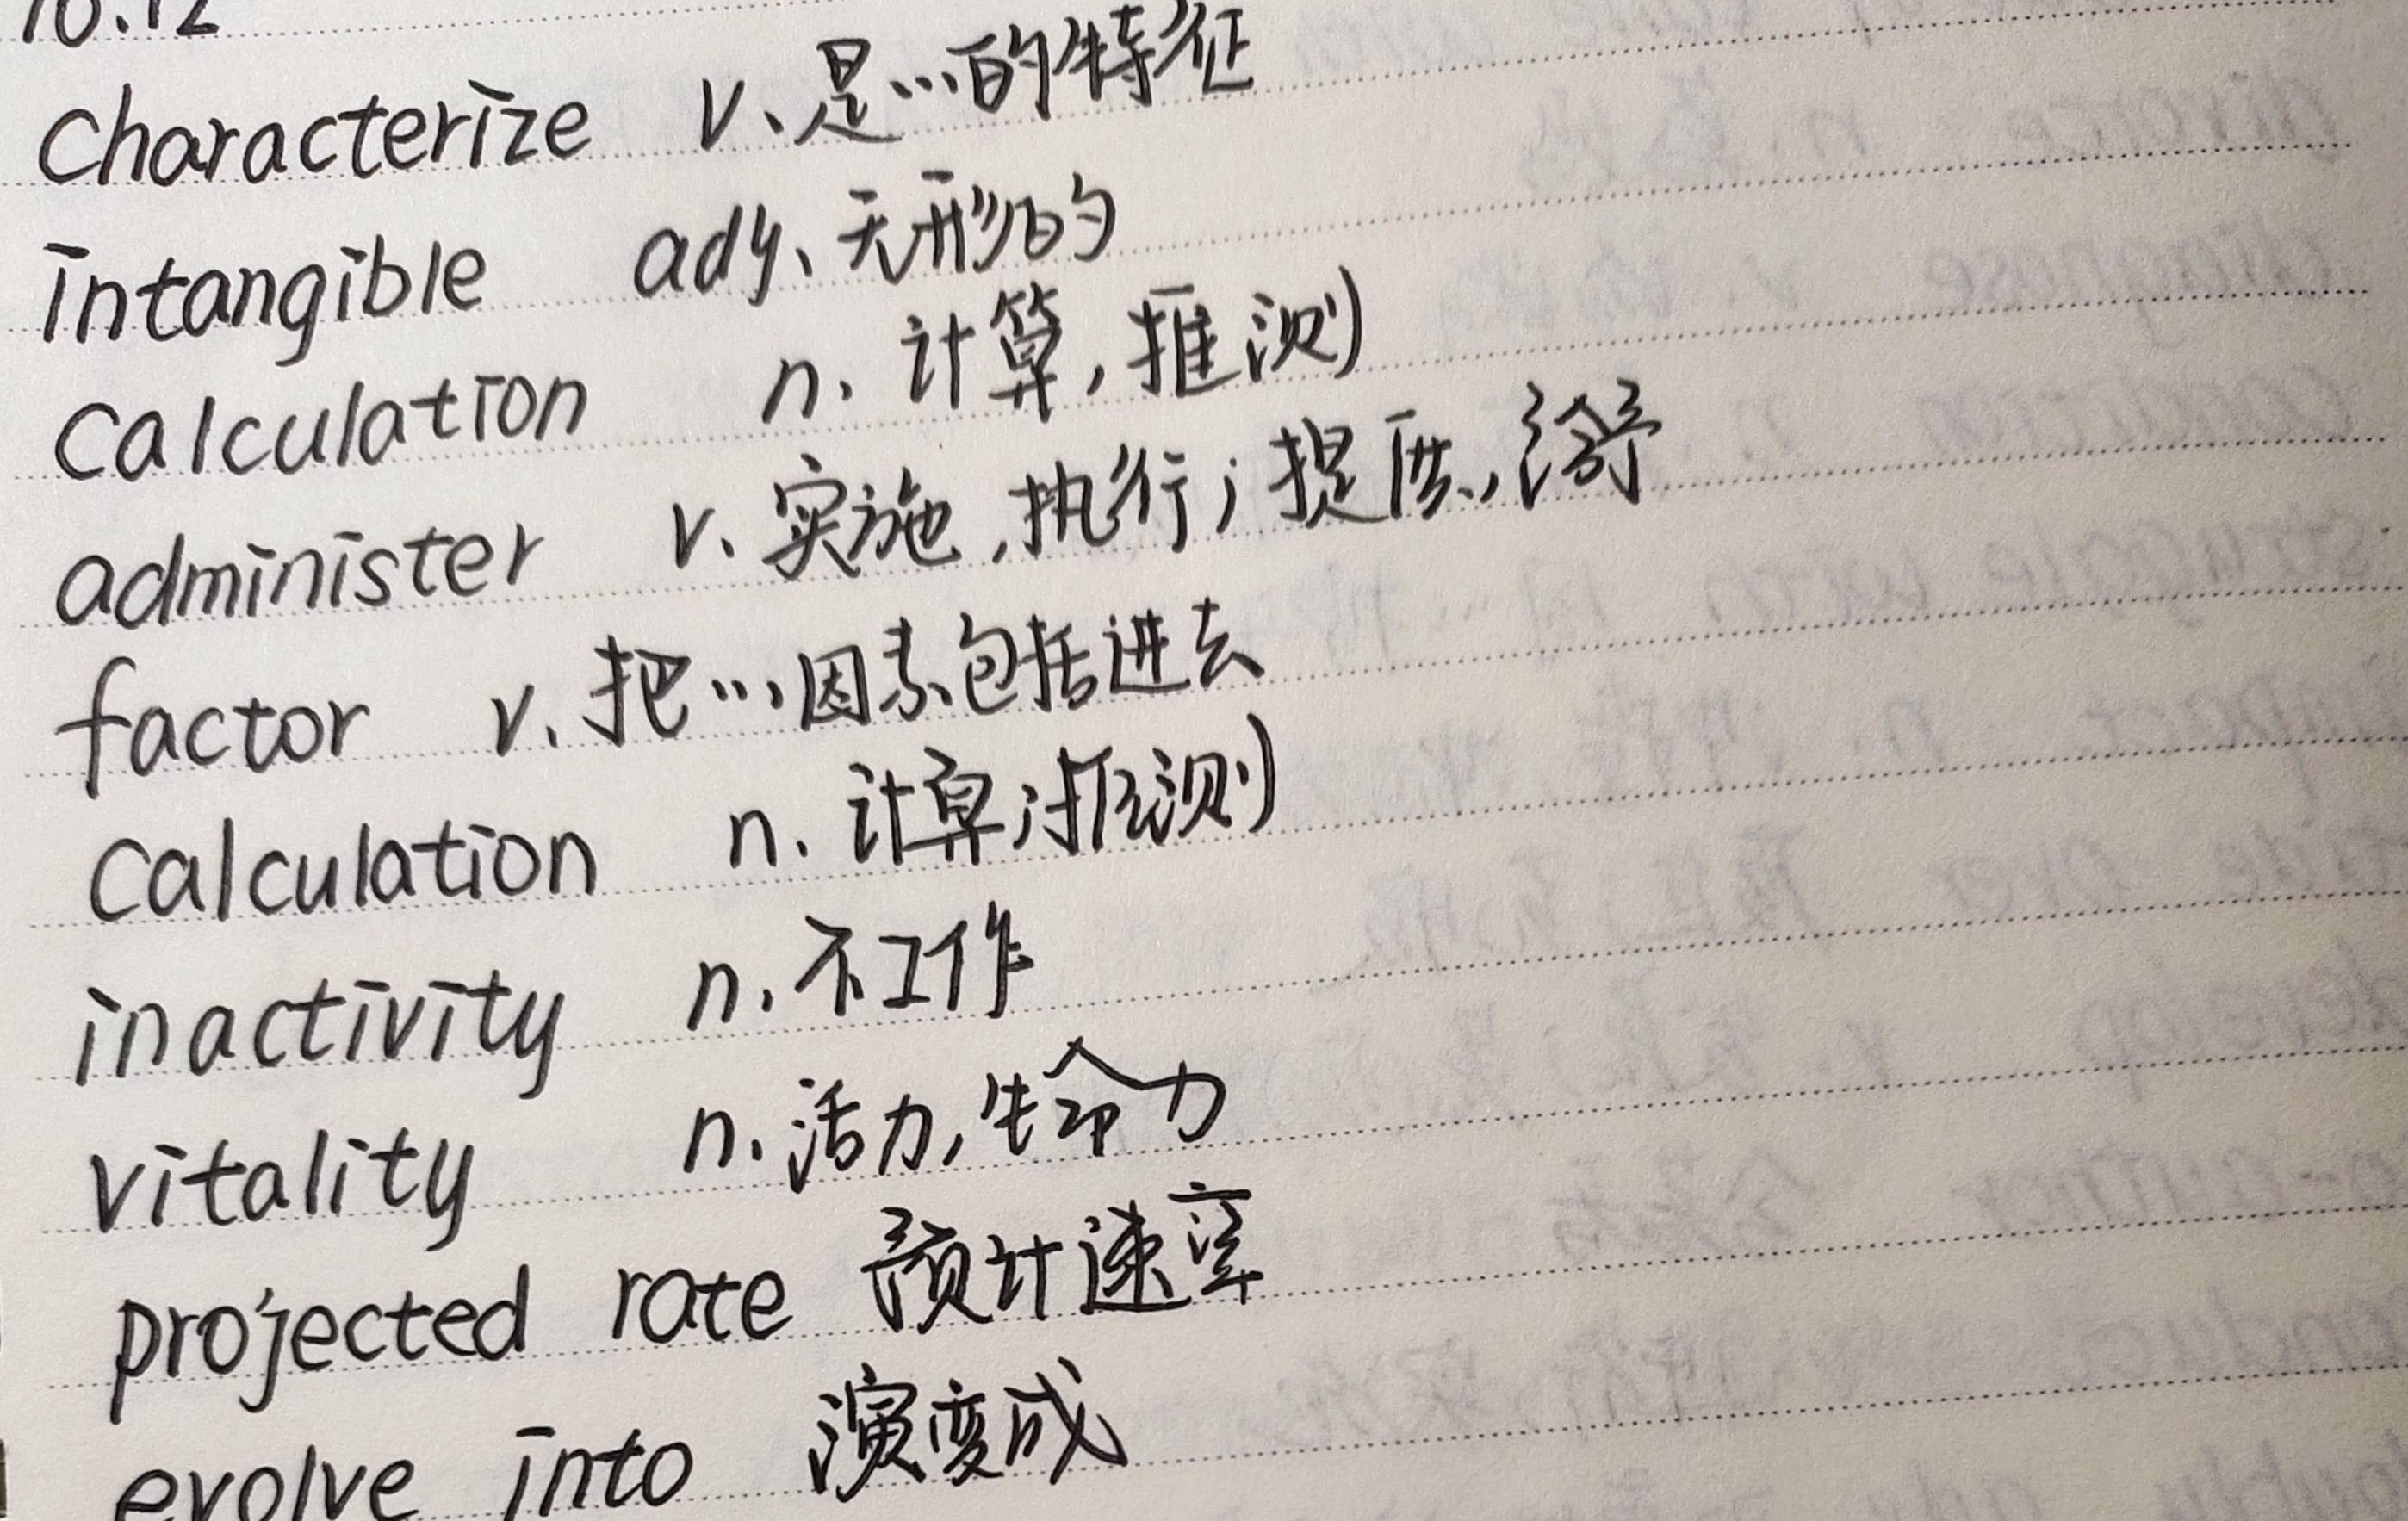 10.12
characterize v、是…的特征
intangible ady、无形的
calculation n. 计算,推测
administer v. 实施,执行;提供,给予
factor v. 把…因素包括进去
calculation n. 计算;推测
inactivity n. 不工作
vitality n. 活力,生命力
projected rate 预计速率
evolve into 演变成